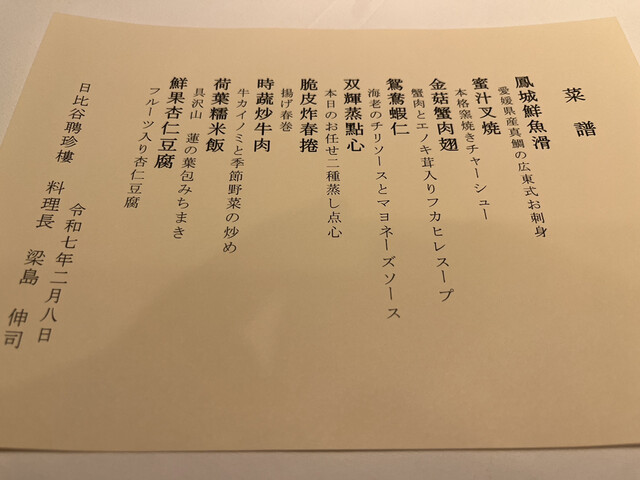 菜譜
鳳城鮮魚滑
愛媛県産真鯛の広東式お刺身
蜜汁叉焼
本格窯焼きチャーシュー
金菇蟹肉翅
蟹肉とエノキ茸入りフカヒレスープ
鴛鴦蝦仁
海老のチリソースとマヨネーズソース
双輝蒸點心
本日のお任せ二種蒸し点心
脆皮炸春捲
揚げ春巻
時蔬炒牛肉
牛カイノミと季節野菜の炒め
荷葉糯米飯
具沢山 蓮の葉包みちまき
鮮果杏仁豆腐
フルーツ入り杏仁豆腐
令和七年二月八日
日比谷聘珍樓 料理長 梁島 伸司